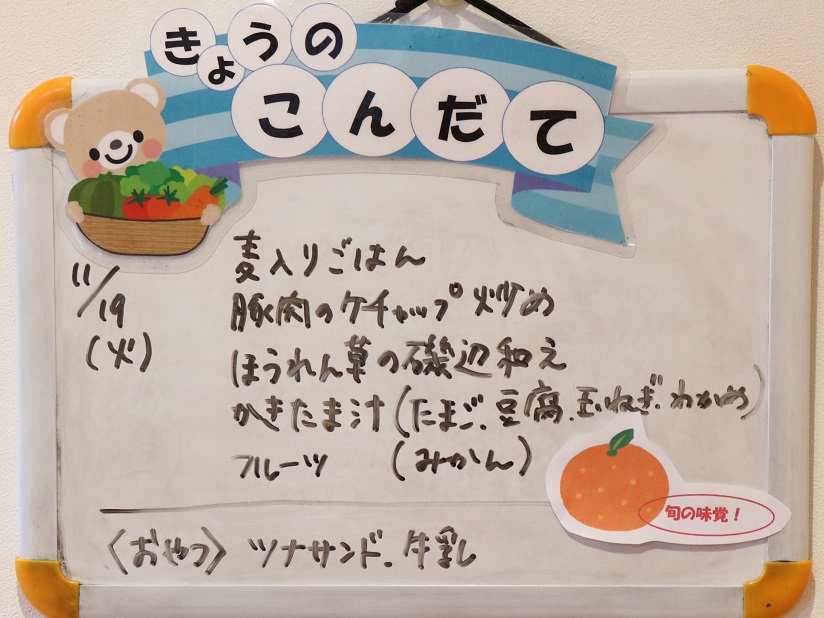 きょうの
こんだて
11/19
(火)
麦入りごはん
豚肉のケチャップ炒め
ほうれん草の磯辺和え
かきたま汁(たまご、豆腐、玉ねぎ、わかめ)
フルーツ (みかん)
旬の味覚!
〈おやつ〉 ツナサンド、牛乳